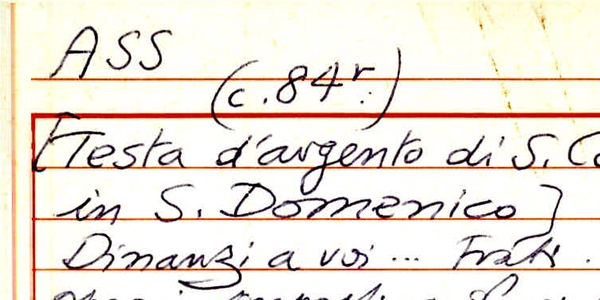 ASS
(c. 84r.)
[Testa d'argento di S. Ca
in S. Domenico]
Dinanzi a voi... Frati.